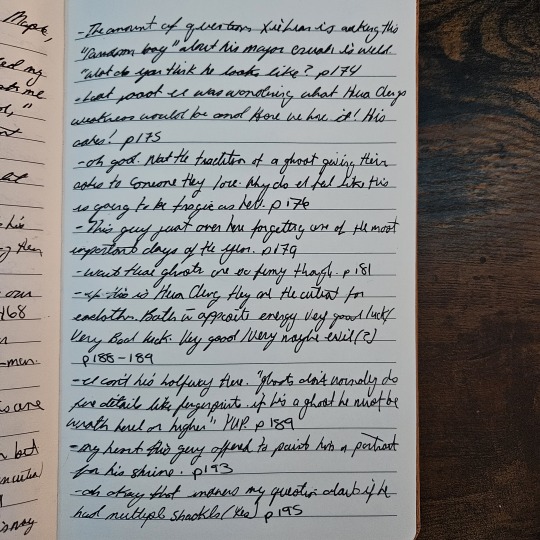 Maple,
-The amount of questions Xie Lian is asking this
"random boy" about his major crush is wild
"what do you think he looks like? p174
-last post I was wondering what Hua Chengs
weakness would be and Here we have it! His
ashes! p175
-oh god. Not the tradition of a ghost giving their
ashes to someone they love. Why do I feel like this
is going to be tragic as hell. p176
-This guy just over here forgetting one of the most
important days of the year. p179
-want that ghosts are so funny though. p181
-if this is Hua Cheng they are the cutest for
eachother. Both in opposite energy Very good luck/
Very Bad luck. Very good/Very maybe evil(?)
p188-189
his halfway there. "ghosts don't normally do
fine details like fingerprints. if his a ghost he must be
wrath level or higher" YUP. p189
-my heart this guy offered to paint him a portrait
for his shrine. p193
-oh okay that answers my question about if he
had multiple shackles (Yes) p195
ted my
me
at
his
our
468
men.
are
but